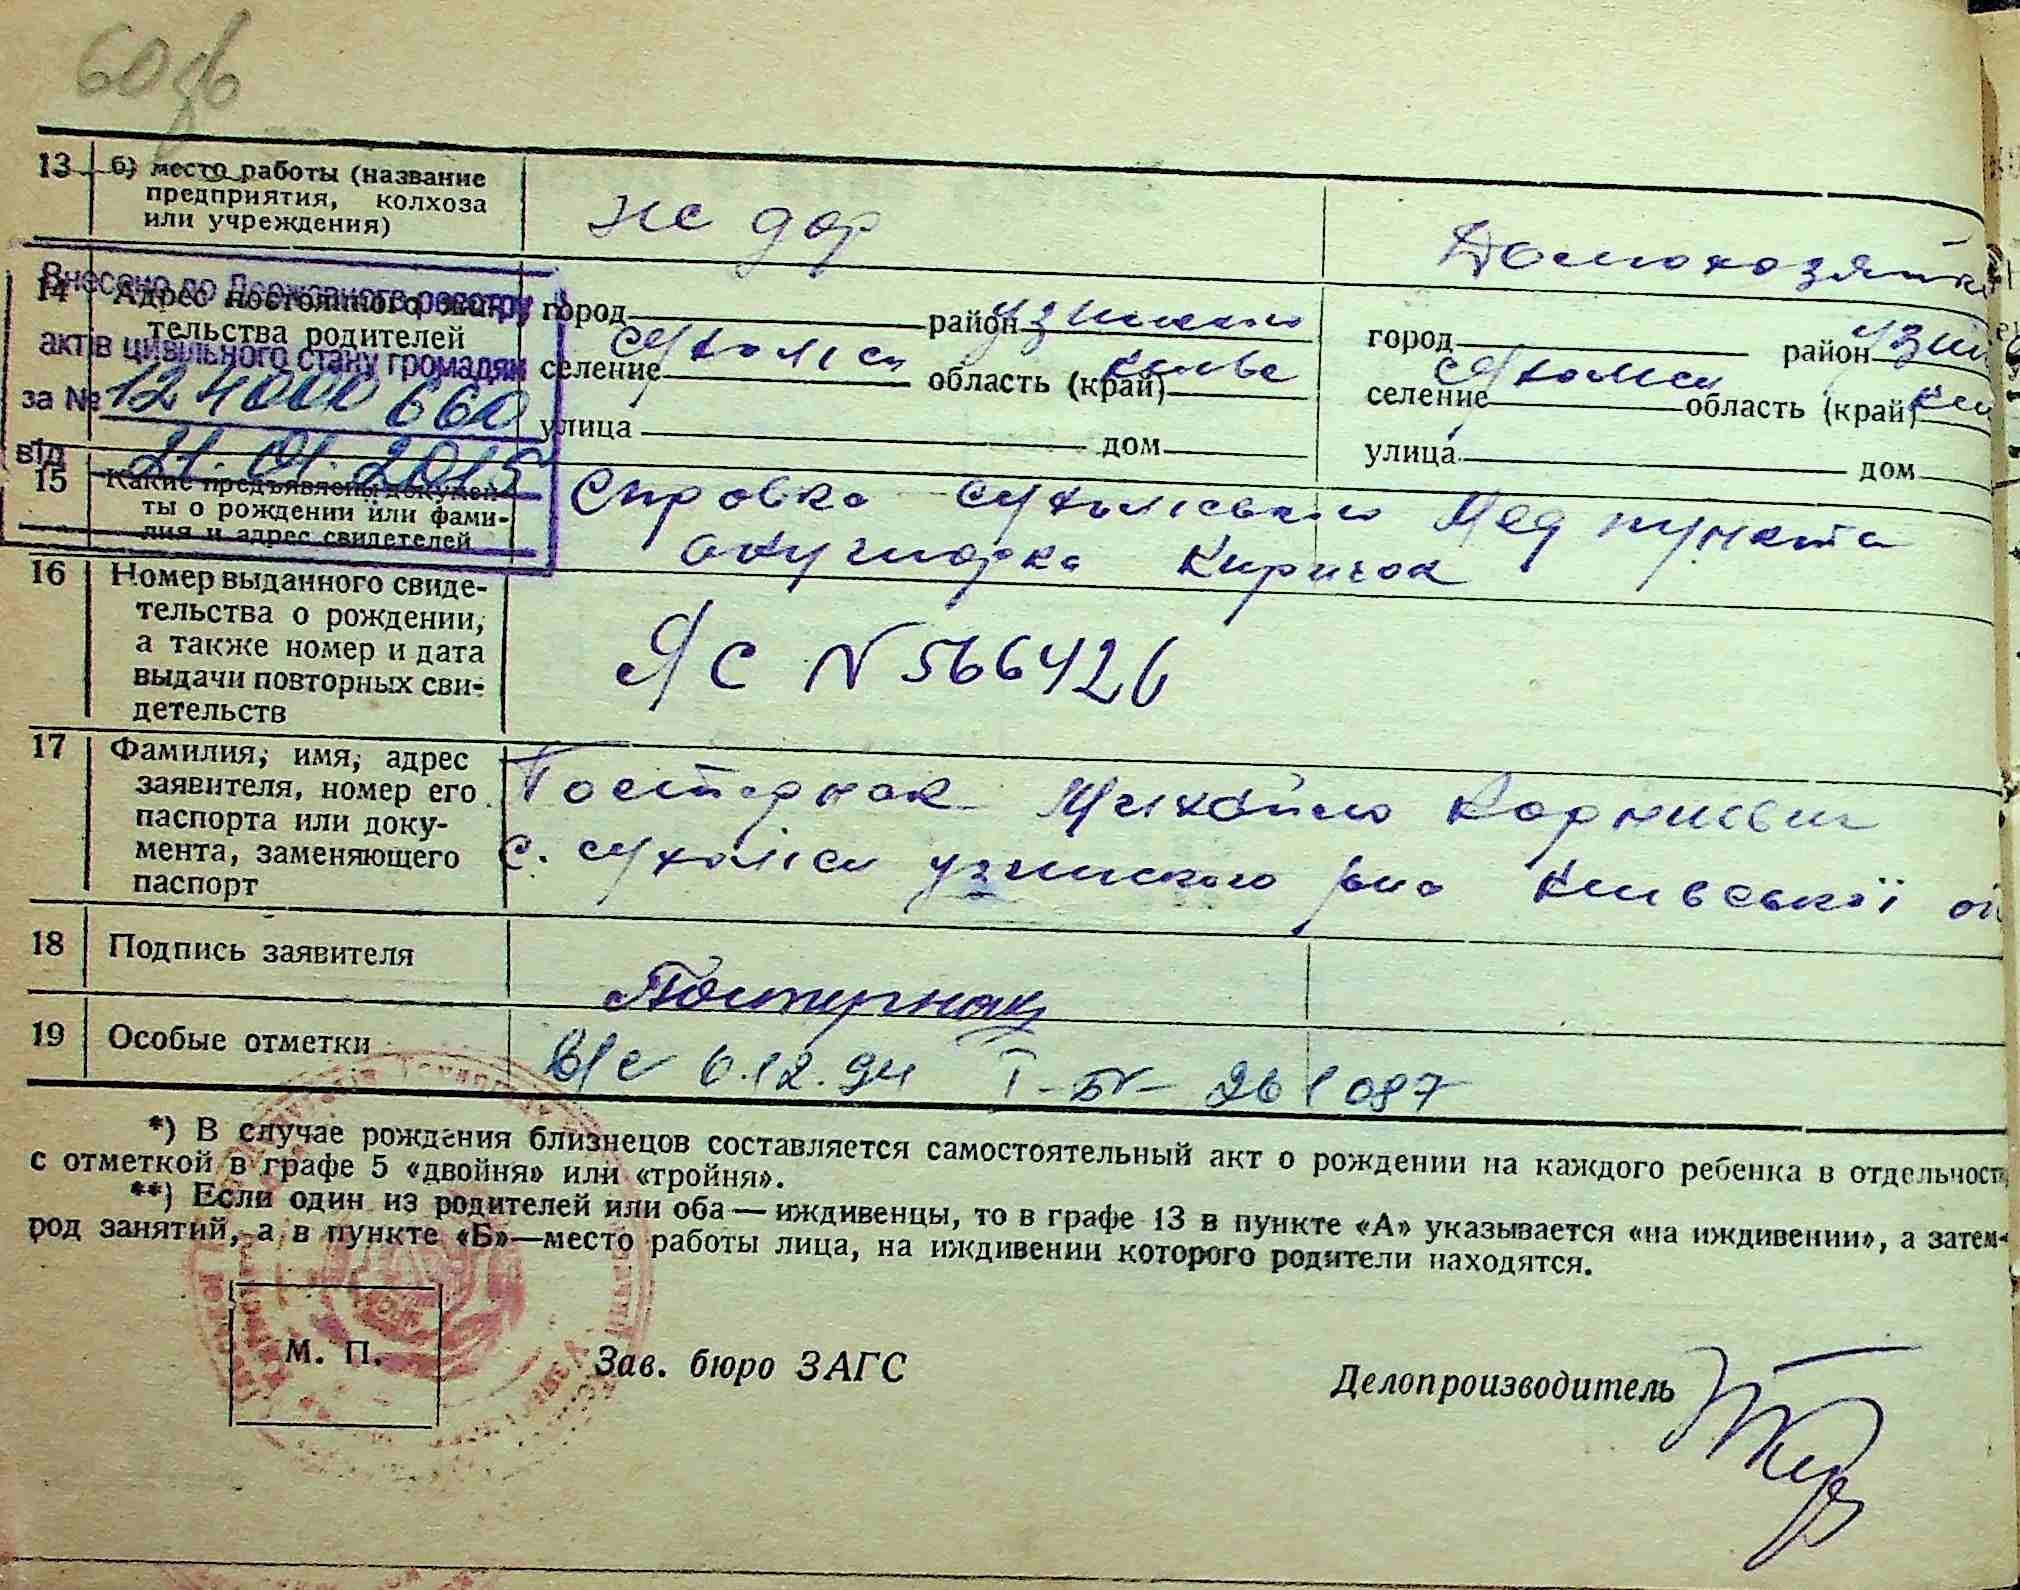 13 б) место работы (название
предприятия, колхоза
или учреждения)
Домохозяйка
Внесено до Державного реєстру
актів цивільного стану громадян
за № 124000660
від 21.01.2015
14 Адрес постоянного житель
тельства родителей
город район
селение Сухоліси область (край)
улица дом
город район
селение Сухоліси область (край)
улица дом
15 Какие предъявлены докумен-
ты о рождении или фами-
лия и адрес свидетелей
Справка Сухоліського Мед пункта
акушорка Киричок
16 Номер выданного свиде-
тельства о рождении,
а также номер и дата
выдачи повторных сви-
детельств
ЯС N 566426
17 Фамилия, имя, адрес
заявителя, номер его
паспорта или доку-
мента, заменяющего
паспорт
Постернак Михайло Корнієвич
с. Сухоліси Узинского р-на Київської
18 Подпись заявителя
Постернак
19 Особые отметки
6.12.94 I-БК 261087
*) В случае рождения близнецов составляется самостоятельный акт о рождении на каждого ребенка в отдельност
с отметкой в графе 5 «двойня» или «тройня».
**) Если один из родителей или оба — иждивенцы, то в графе 13 в пункте «А» указывается «на иждивении», а затем
род занятий, а в пункте «Б»—место работы лица, на иждивении которого родители находятся.
М. П.
Зав. бюро ЗАГС
Делопроизводитель